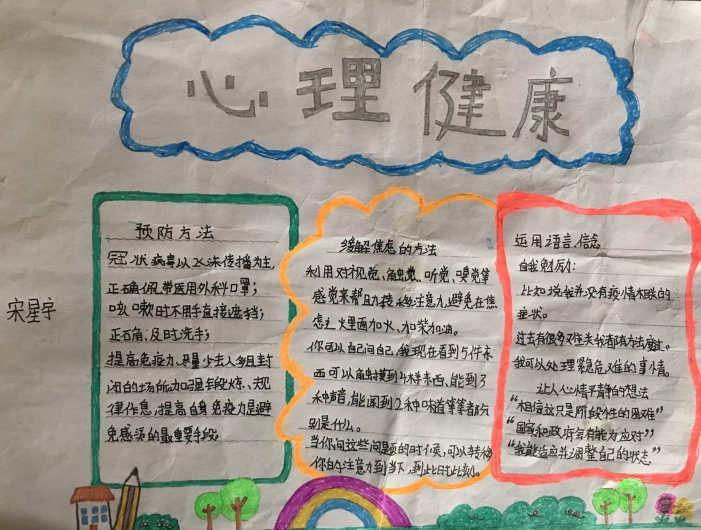 心理健康
宋星宇
预防方法
冠状病毒以飞沫传播为主,
正确佩带医用外科口罩;
咳嗽时不用手直接遮挡;
正确、及时洗手;
提高免疫力、尽量少去人多且封
闭的场所,加强锻炼、规
律作息,提高自身免疫力是避
免感染的最重要手段
缓解焦虑的方法
利用对视觉、触觉、听觉、嗅觉等
感觉来帮助转移注意力,避免在焦
虑之火里面加火,加柴加油。
你可以自己问自己,我现在看到5件东
西可以触摸到4样东西,能到3
种声音,能闻到2种味道等等都分
别是什么。
当你问这些问题的时候,可以转移
你的注意力到当下,到此时此刻。
运用语言信念
自我勉励:
比如说我并没有疫情相关的
症状。
过去有很多难关我都有方法度过。
我可以处理紧急危难的事情。
让人心情平静的想法
“相信这只是阶段性的困难”
“国家和政府会有能力应对”
“我能适应并调整自己的状态”